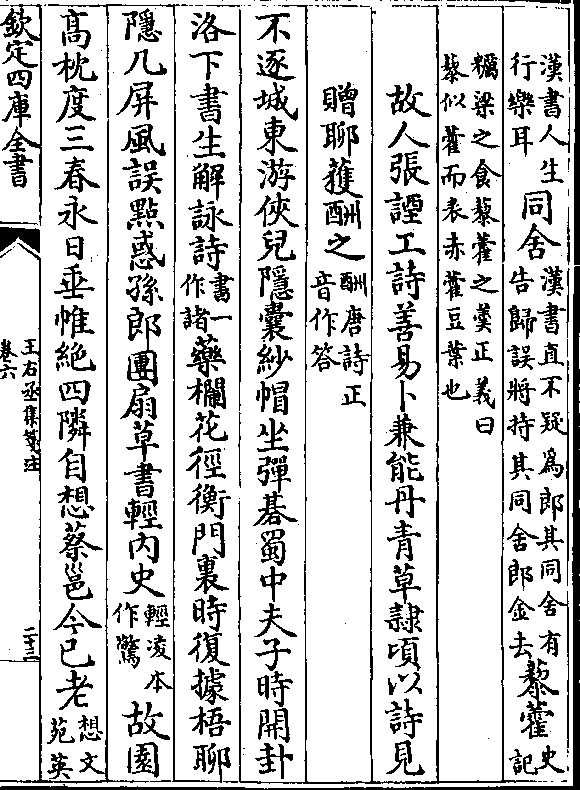 漢書人生
行樂耳
同舍
漢書直不疑為郎其同舍有
告歸誤將持其同舍郎金去
藜藿
史記
糲粱之食藜藿之羮正義曰
藜似藿而表赤藿豆葉也
故人張諲工詩善易卜兼能丹青草隸頃以詩見
贈聊獲酬之
酬唐詩正
音作答
不逐城東游俠兒隱囊紗帽坐彈碁蜀中夫子時開卦
洛下書生解詠詩
書一
作諸
藥欄花徑衡門裏時復據梧聊
隱几屏風誤點惑孫郎團扇草書輕内史
輕凌本
作驚
故園
髙枕度三春永日垂帷絶四隣自想蔡邕今已老
想文
苑英
欽定四庫全書
王右丞集箋注
卷六
二十三